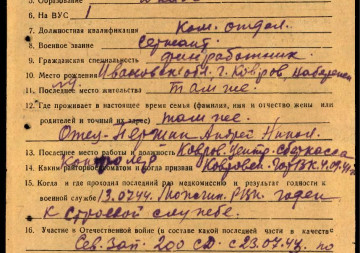 5. Образование
6. На ВУС 1
7. Должностная квалификация Ком. отдел.
8. Военное звание Сержант
9. Гражданская специальность финработник
10. Место рождения Ивановская обл. г. Ковров,
11. Последнее место жительства там же.
12. Где проживает в настоящее время семья (фамилия, имя и отчество жены или
родителей и точный их адрес) там же.
Отец Андрей Никол.
13. Последнее место работы и должность Ковров. Центр. сберкасса
контролер
14. Каким райвоенкоматом и когда призван Ковровск. ГорВК
15. Когда и где проходил последний раз медкомиссию и результат годности к
военной службе 13.07.44. годен
к строевой службе.
16. Участие в Отечественной войне (в составе какой последней части в качестве
Сев. Зап. 200 СД с 23.07.42 по